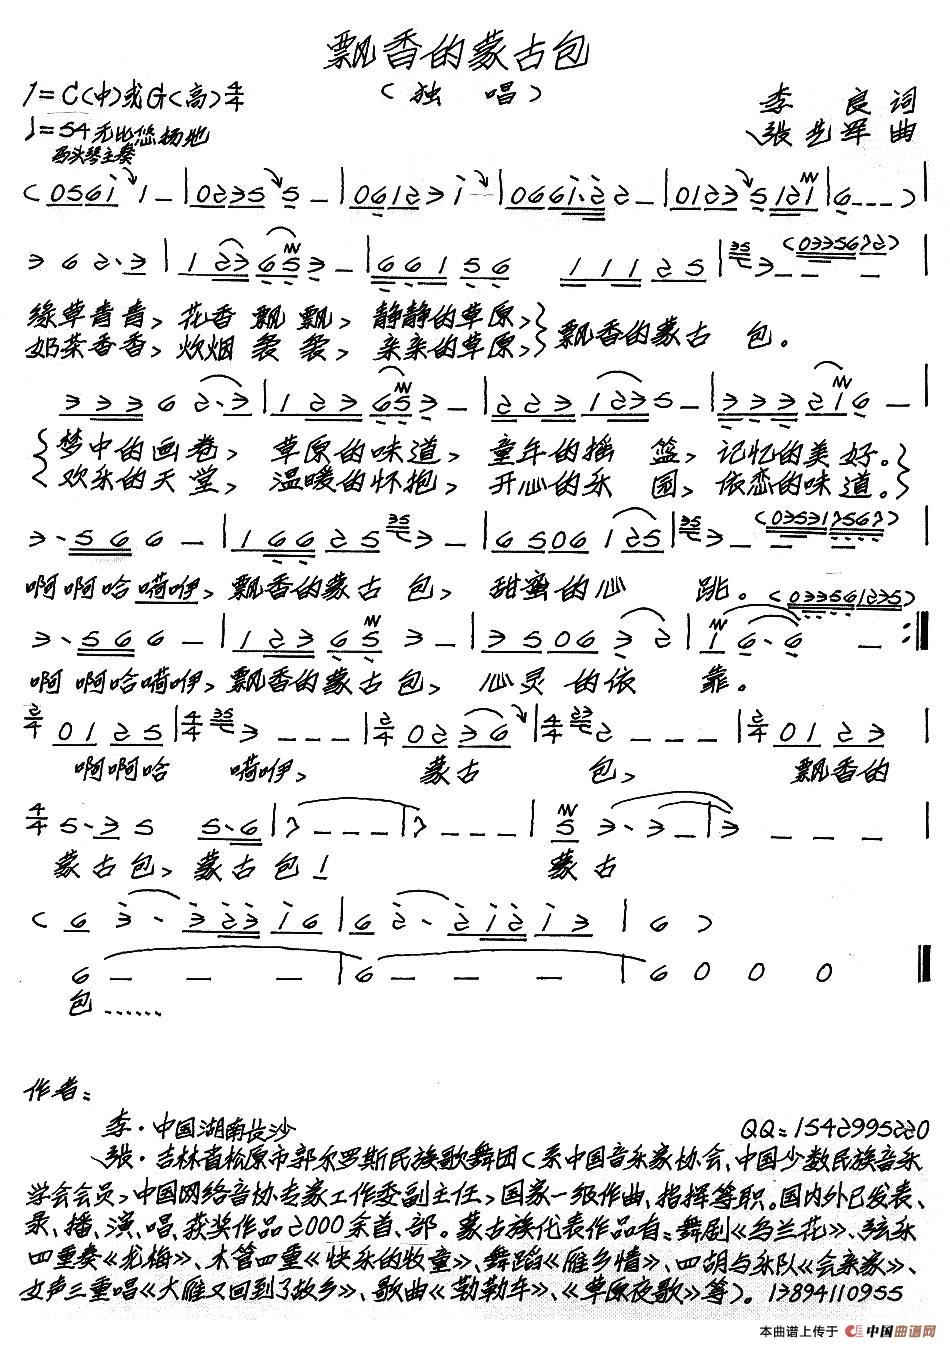 飘香的蒙古包
(独 唱)
1=C(中)或G(高)4/4
李 良 词
♩=54 无比悠扬地
张艺军 曲
马头琴主奏
(0561 1 - | 0235 5 - | 0612 3 1 | 0661·2 2 - | 0123 5 121 | 6 - - - )
3 6 2·3 | 1 23 65 3 - | 661 56 111 25 | 35 3 - - (033567 2)
绿草青青, 花香飘飘, 静静的草原,
奶茶香香, 炊烟袅袅, 亲亲的草原,
飘香的蒙古包。
333 6 2·3 | 123 65 3 - | 223 1235 - | 333 21 6 -
梦中的画卷, 草原的味道, 童年的摇篮, 记忆的美好。
欢乐的天堂, 温暖的怀抱, 开心的乐园, 依恋的味道。
3·566 - | 166 25 35 3 - | 6506 125 | 35 3 - - (03531 7567)
啊啊哈嗬咿, 飘香的蒙古包, 甜蜜的心 跳。
(033561235)
3·566 - | 123 65 3 - | 3506 3 2 | 1 6·6 - :‖
啊啊哈嗬咿, 飘香的蒙古包, 心灵的依 靠。
2/4 01 25 | 4/4 35 3 - - - | 2/4 02 36 | 4/4 23 2 - - - | 2/4 01 23
啊啊哈 嗬咿, 蒙古 包, 飘香的
4/4 5·3 5 5·6 | 7 - - - | 7 - - - | 5 3·3 - | 3 - - -
蒙古包, 蒙古包! 蒙古
( 6 3·32316 | 6 2·21213 | 6 )
6 - - - | 6 - - - | 6 0 0 0
包……
作者:
李·中国湖南长沙
QQ:1542995220
张·吉林省松原市郭尔罗斯民族歌舞团(系中国音乐家协会、中国少数民族音乐
学会会员,中国网络音协专家工作委副主任,国家一级作曲、指挥等职。国内外已发表、
录、播、演、唱、获奖作品2000余首、部。蒙古族代表作品有:舞剧《乌兰花》、弦乐
四重奏《龙梅》、木管四重《快乐的牧童》、舞蹈《雁乡情》、四胡与乐队《会亲家》、
女声三重唱《大雁又回到了故乡》、歌曲《勒勒车》、《草原夜歌》等)。13894110955
本曲谱上传于 中国曲谱网